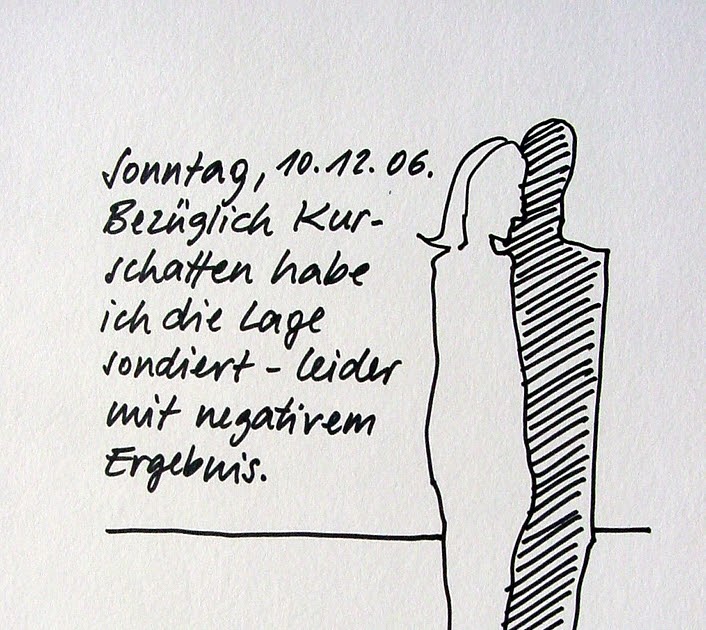 Sonntag, 10.12.06.
Bezüglich Kur-
schatten habe
ich die Lage
sondiert - leider
mit negativem
Ergebnis.